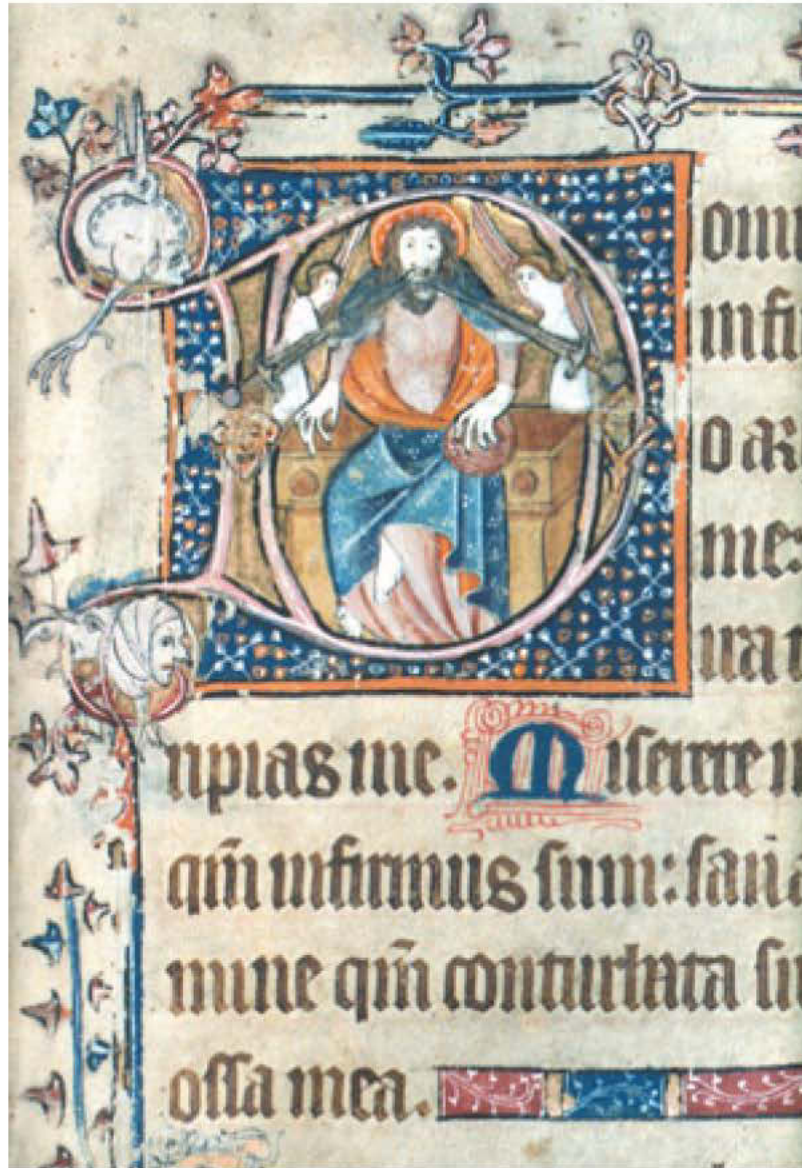 Domi
infi
o ar
me:
ura
ripias me. Miserere m
qm̄ infirmus sum: sana
mine qm̄ conturbata su
ossa mea.